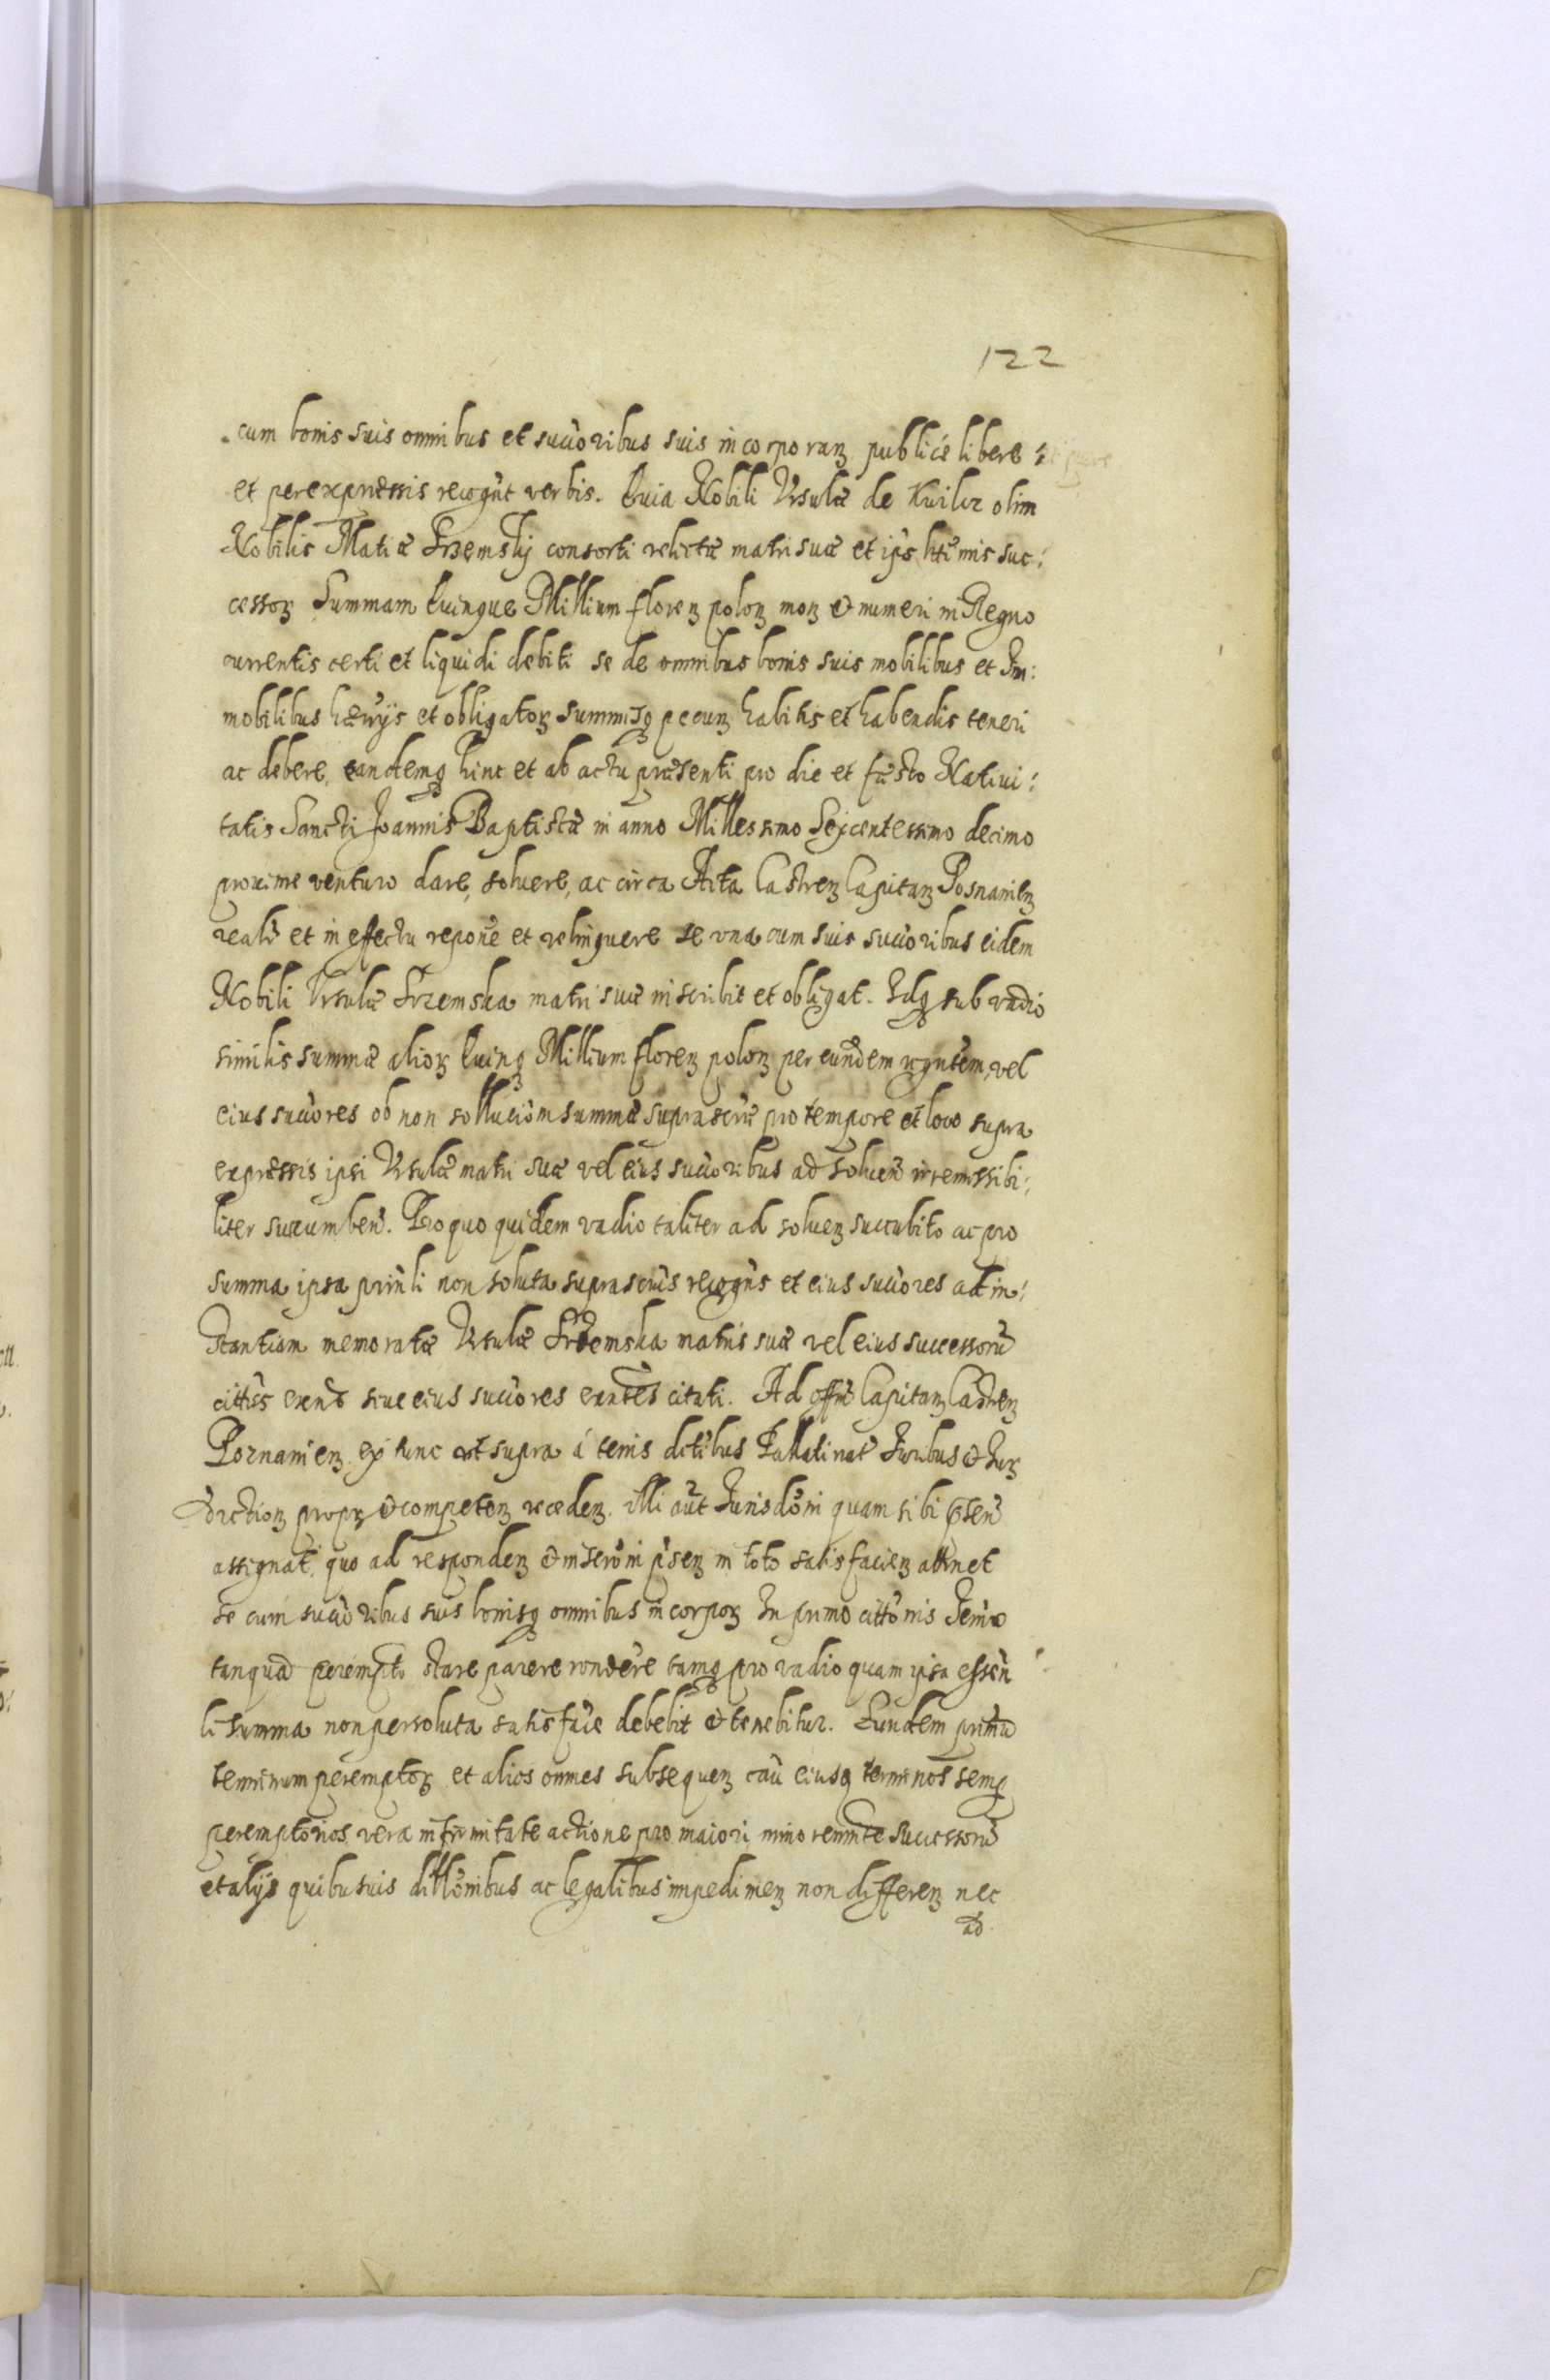 122
cum bonis suis omnibus et succoribus suis incorporan publicè libere
et per expressis recognit verbis. Quia Nobili Vrsulæ de Kwilcz olim
Nobilis Matiæ Srzemskÿ consorti relictæ matri suæ et ips ltimis suc:
cessor Summam Quinque Millium floren polon mon & numeri in Regno
currentis certi et liquidi debiti se de omnibus bonis suis mobilibus et Im:
mobilibus hærijs et obligator summisq pecun habitis et habendis teneri
ac debere, eandemq hinc et ab actu præsenti pro die et festo Natiui:
tatis Sancti Joannis Baptistæ in anno Millessimo Sexcentessimo decimo
proxime venturo dare, soluere, ac circa Acta Castren Capitan Posnanien
realr et in effectu repone et relinquere se vna cum suis succoribus eidem
Nobili Vrsulæ Srzemska matri suæ inscribit et obligat. Idq sub vadio
similis summæ alior Quinq Millium floren polon per eundem rgntem, vel
eius succores ob non sollucionm summæ suprascræ pro tempore et loco supra
expressis ipsi Vrsulæ matri suæ vel eius succoribus ad soluen irremissibi:
liter succumben. Pro quo quidem vadio taliter ad soluen succubito ac pro
summa ipsa prinli non soluta suprascrus recogns et eius succores ad in:
stantiam memoratæ Vrsulæ Srzemska matris suæ vel eius successoru
cittus exens siue eius succores exntes citati. Ad offm Capitan Castren
Poznanien ex tunc vt supra á terris dctibus Pallatinat Juribus & Jur
diction propr & competen receden. illi aut Jurisdoni quam sibi psen
assignat, quo ad responden & inseroni psen in toto satisfacien attinet
se cum succoribus suis bonisq omnibus incorpor In primo cittonis Termo
tanquā perempto stare parere rondere tamq pro vadio quam ipsa essen
li summa non persoluta satisface debebit & tenebitur. Eundem primū
terminum perempton et alios omnes subsequen cau eiusq terminos semp
peremptorios vera infirmitate actione pro maiori, minorennte successoru
et alijs quibusuis dillonibus ac legalibus impedimen non differen nec
ad